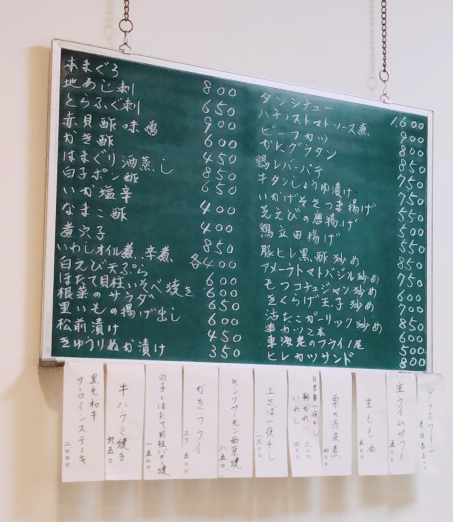 本まぐろ
地あじ刺 800
とらふぐ刺 650
赤貝酢味噌 900
かき酢 600
はまぐり酒蒸し 450
白子ポン酢 850
いか塩辛 650
なまこ酢 400
煮穴子 400
いわしオイル煮、辛煮 850
白えび天ぷら 各400
ほたて貝柱いそべ焼き 600
根菜のサラダ 600
里いもの揚げ出し 650
松前漬け 600
きゅうりぬか漬け 450
350
タンシチュー 1,600
ハチノストマトソース煮 900
ビーフカツ 800
かにグラタン 850
鶏レバーパテ 750
牛タンしょうゆ漬け 750
いかげそさつま揚げ 550
芝えびの唐揚げ 500
鶏立田揚げ 550
豚ヒレ黒酢炒め 850
アメーラトマトバジル炒め 750
もつコチュジャン炒め 600
きくらげ玉子炒め 700
活たこガーリック炒め 850
串カツ2本 600
車海老のフライ1尾 500
ヒレカツサンド 800
黒毛和牛
サーロインステーキ
二〇〇〇
牛ハラミ焼き
白子とほたて貝柱バタ焼
一五〇〇
かきフライ
キングサーモン西京焼
八五〇
上さば一夜干し
栗の渋皮煮
生もも酒
生ライムサワー